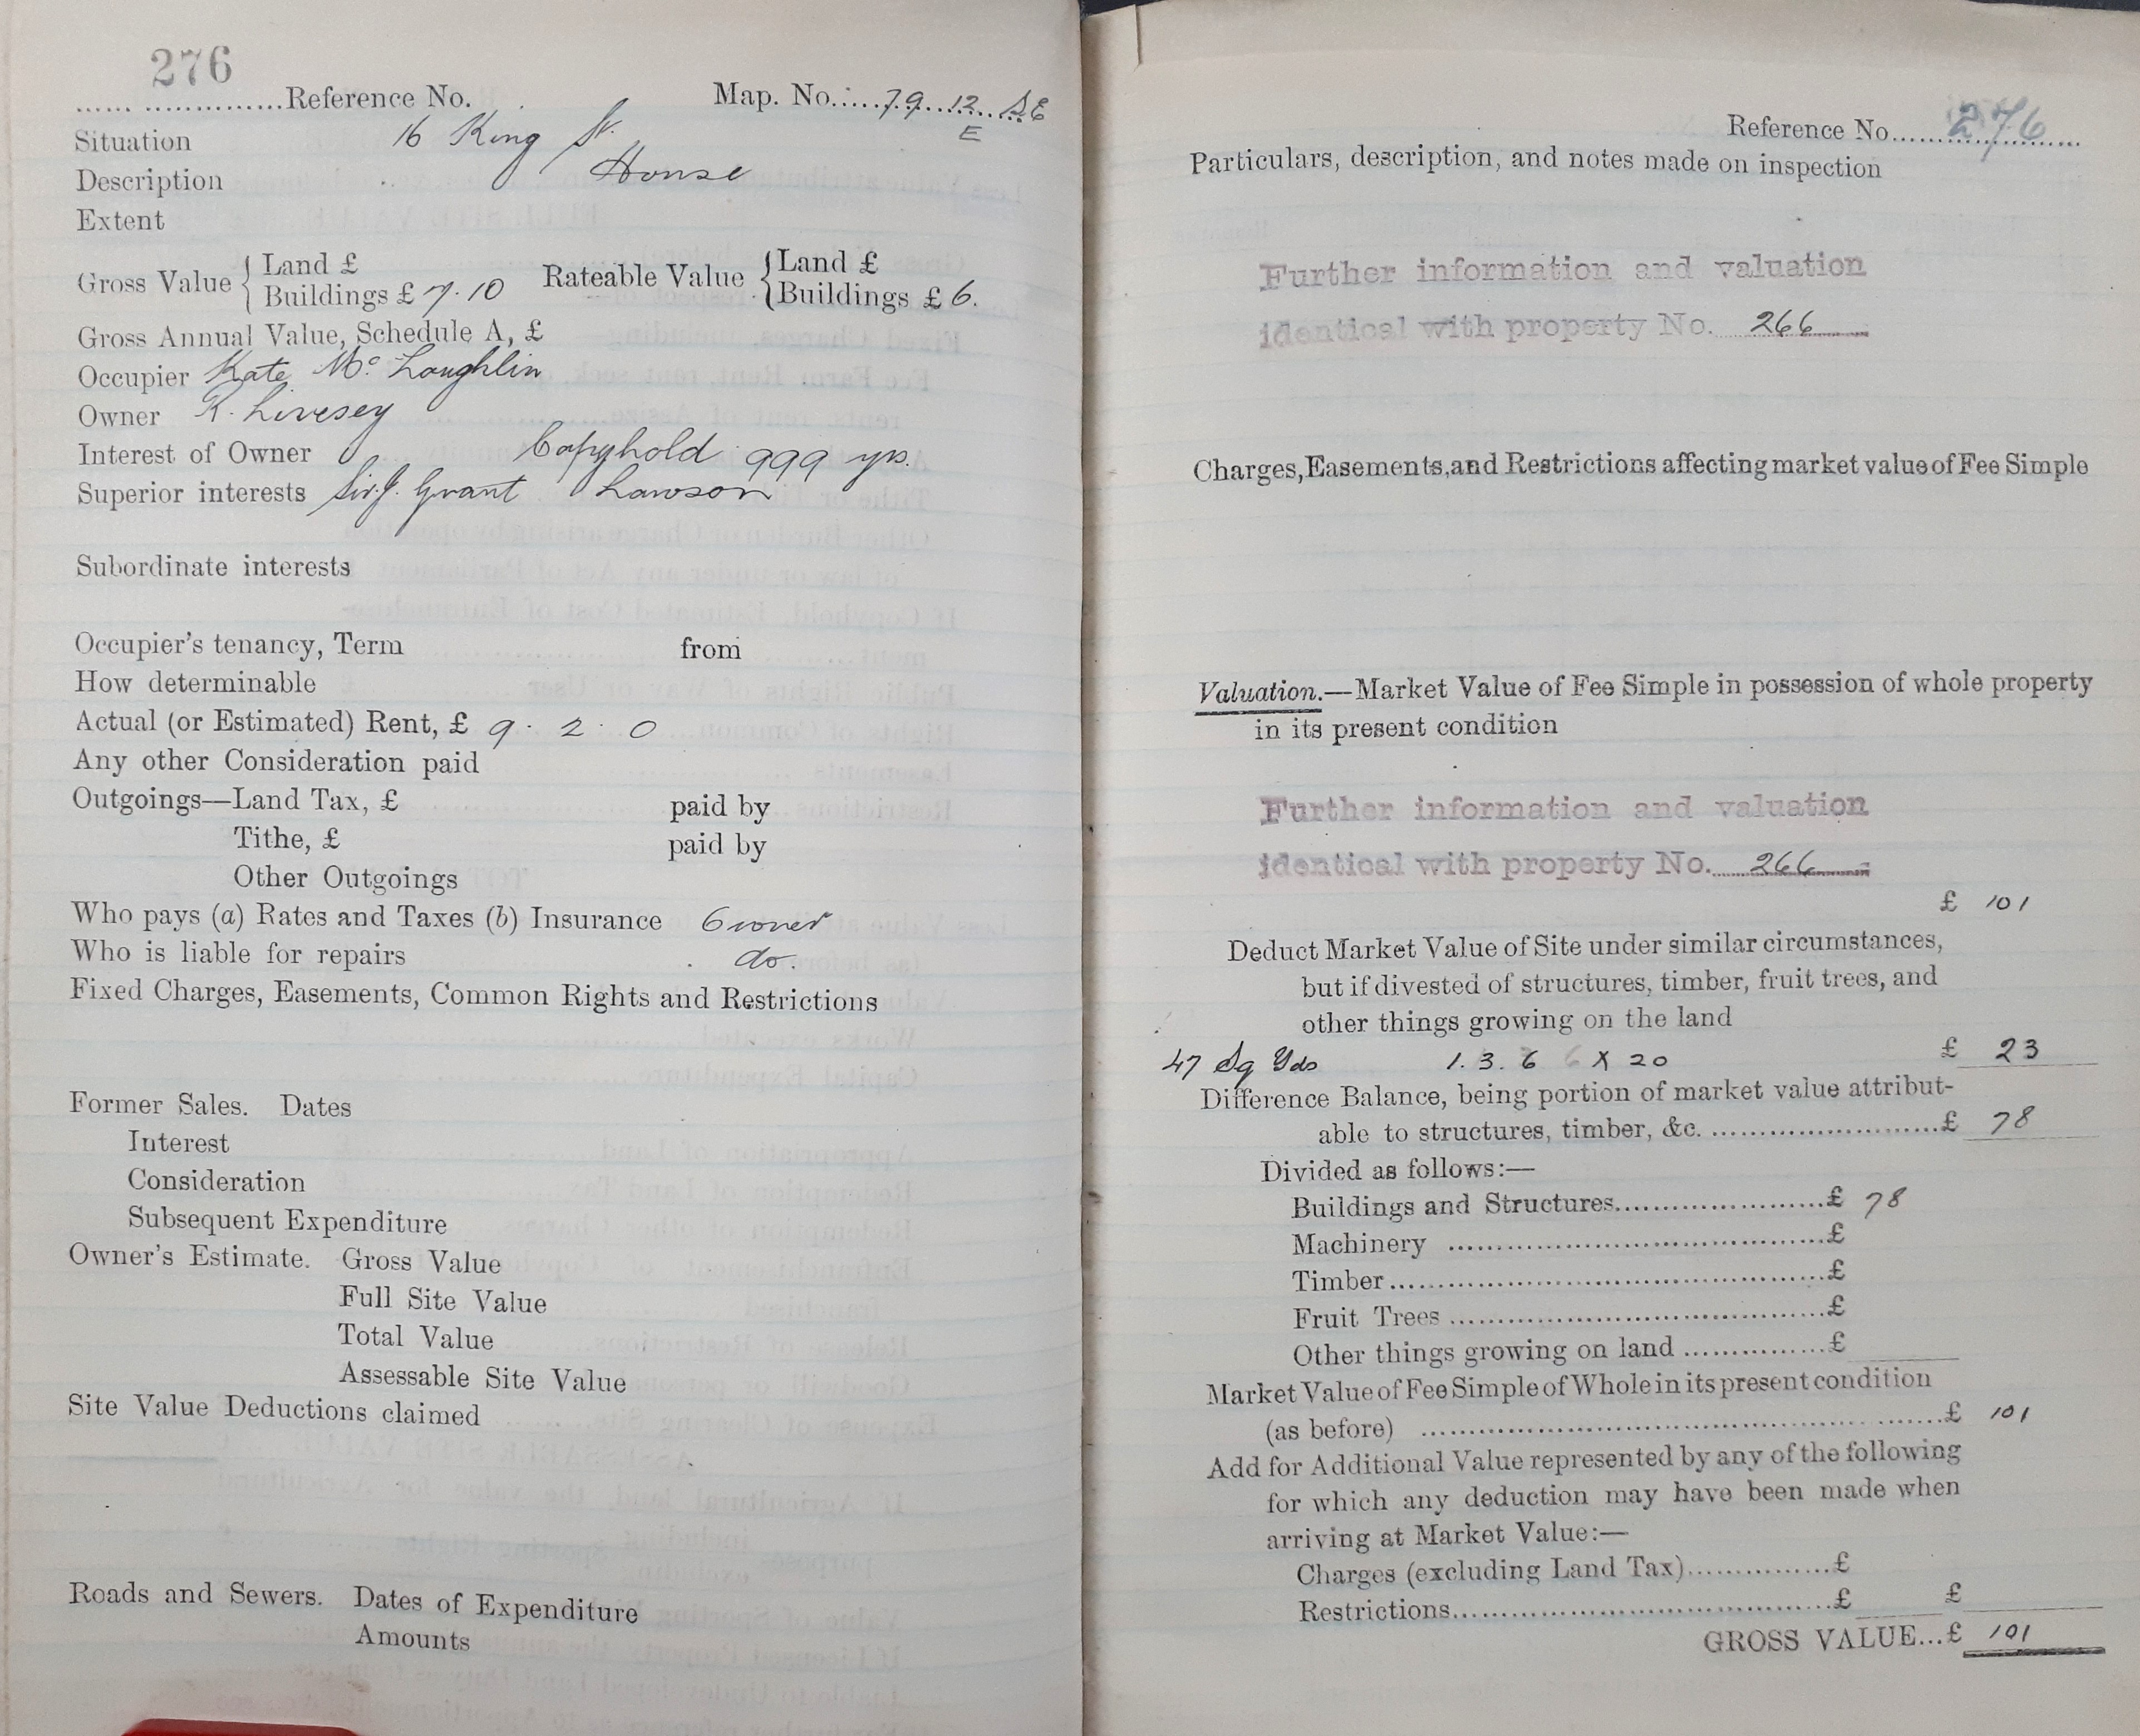 276
...... ..............Reference No.
Map. No.....79...12...SE
E
Situation 16 King St.
Description House
Extent
Gross Value { Land £
Buildings £ 7.10
Rateable Value { Land £
Buildings £ 6.
Gross Annual Value, Schedule A, £
Occupier Kate McLoughlin
Owner R. Livesey
Interest of Owner Copyhold 999 yrs.
Superior interests Sir J. Grant Lawson
Subordinate interests
Occupier's tenancy, Term from
How determinable
Actual (or Estimated) Rent, £ 9. 2. 0
Any other Consideration paid
Outgoings—Land Tax, £ paid by
Tithe, £ paid by
Other Outgoings
Who pays (a) Rates and Taxes (b) Insurance Owner
Who is liable for repairs do.
Fixed Charges, Easements, Common Rights and Restrictions
Former Sales. Dates
Interest
Consideration
Subsequent Expenditure
Owner's Estimate. Gross Value
Full Site Value
Total Value
Assessable Site Value
Site Value Deductions claimed
Roads and Sewers. Dates of Expenditure
Amounts
Reference No......276......
Particulars, description, and notes made on inspection
Further information and valuation
identical with property No. 266
Charges, Easements, and Restrictions affecting market value of Fee Simple
Valuation.—Market Value of Fee Simple in possession of whole property
in its present condition
Further information and valuation
identical with property No. 266
£ 101
Deduct Market Value of Site under similar circumstances,
but if divested of structures, timber, fruit trees, and
other things growing on the land
47 Sq Yds 1. 3. 6 X 20 £ 23
Difference Balance, being portion of market value attribut-
able to structures, timber, &c. ..............................£ 78
Divided as follows:—
Buildings and Structures........................£ 78
Machinery ...........................................£
Timber.................................................£
Fruit Trees ..........................................£
Other things growing on land ................£
Market Value of Fee Simple of Whole in its present condition
(as before) ..........................................................£ 101
Add for Additional Value represented by any of the following
for which any deduction may have been made when
arriving at Market Value:—
Charges (excluding Land Tax)................£
Restrictions..........................................£ £
GROSS VALUE...£ 101